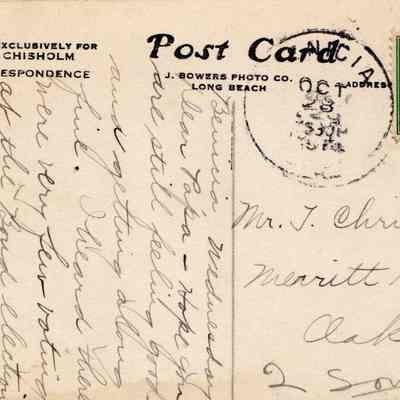 XCLUSIVELY FOR
CHISHOLM
ESPONDENCE
Post Card
J. BOWERS PHOTO CO.
LONG BEACH
ADDRESS
NICIA
OCT
28
Benicia Wednesday
Dear Papa - Hope you
are still feeling good
and getting along
fine. I heard there
were very few voting
at the Bond election
Mr. T. Chri
Merritt
Oak
2